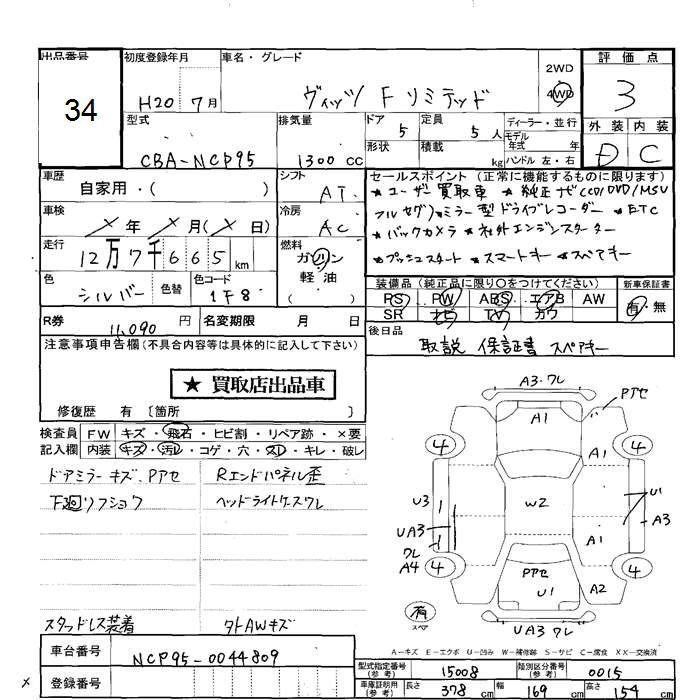 出品番号 34
初度登録年月 H20 7月
車名・グレード ヴィッツ F リミテッド
2WD
4WD
評価点 3
型式 CBA-NCP95
排気量 1300 cc
ドア 5
定員 5人
ディーラー・並行
モデル年式 年式
形状
積載 kg
ハンドル 左・右
外装 内装
D C
車歴 自家用・( )
シフト AT
セールスポイント (正常に機能するものに限ります)
★ユーザー買取車 ★純正ナビ(CD/DVD/MSV
フルセグ) ★ミラー型ドライブレコーダー ★ETC
★バックカメラ ★社外エンジンスターター
★プッシュスタート ★スマートキー ★スペアキー
車検 年 月( 日)
冷房 AC
走行 12万7千665 km
燃料 ガソリン
軽油
( )
色 シルバー 色替
色コード 1F8
装備品 (純正品に限り○をつけてください)
新車保証書
PS PW ABS エアB AW
有・無
SR ナビ TV カワ
R券 11,090 円
名変期限 月 日
後日品 取説 保証書 スペアキー
注意事項申告欄(不具合内容等は具体的に記入して下さい)
★ 買取店出品車
修復歴 有 〔箇所 〕
検査員 FW キズ・飛石・ヒビ割・リペア跡・×要
記入欄 内装 キズ・汚レ・コゲ・穴・スレ・キレ・破レ
ドアミラーキズ、Pアセ Rエンドパネル歪
F廻リフショク ヘッドライトケースワレ
スタッドレス装着 タトAWキズ
A3・ワレ
Pアセ
A1
4 4
A1
U3
W2
U1
A3
UA3
ワレ
A1
A4
4 4
Pアセ
U1
A2
有
スペア
UA3 ワレ
A-キズ E-エクボ U-凹み W-補修跡 S-サビ C-腐食 XX-交換済
車台番号 NCP95-0044809
型式指定番号(参考) 15008
類別区分番号(参考) 0015
× 登録番号
車庫証明用(参考) 長さ 378 cm 幅 169 cm 高さ 154 cm